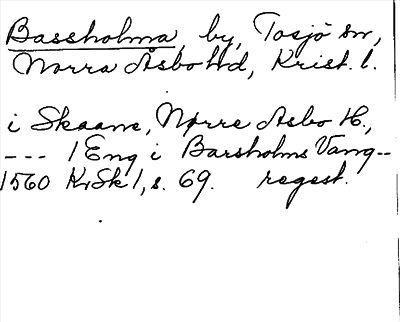 Bassholma, by, Tosjö sn,
Norra Åsbo Hd, Krist. l.
i Skaane, Nørre Asbo H.,
--- 1 Eng i Barsholms Vang--
1560 KrSk 1, s. 69. regest.